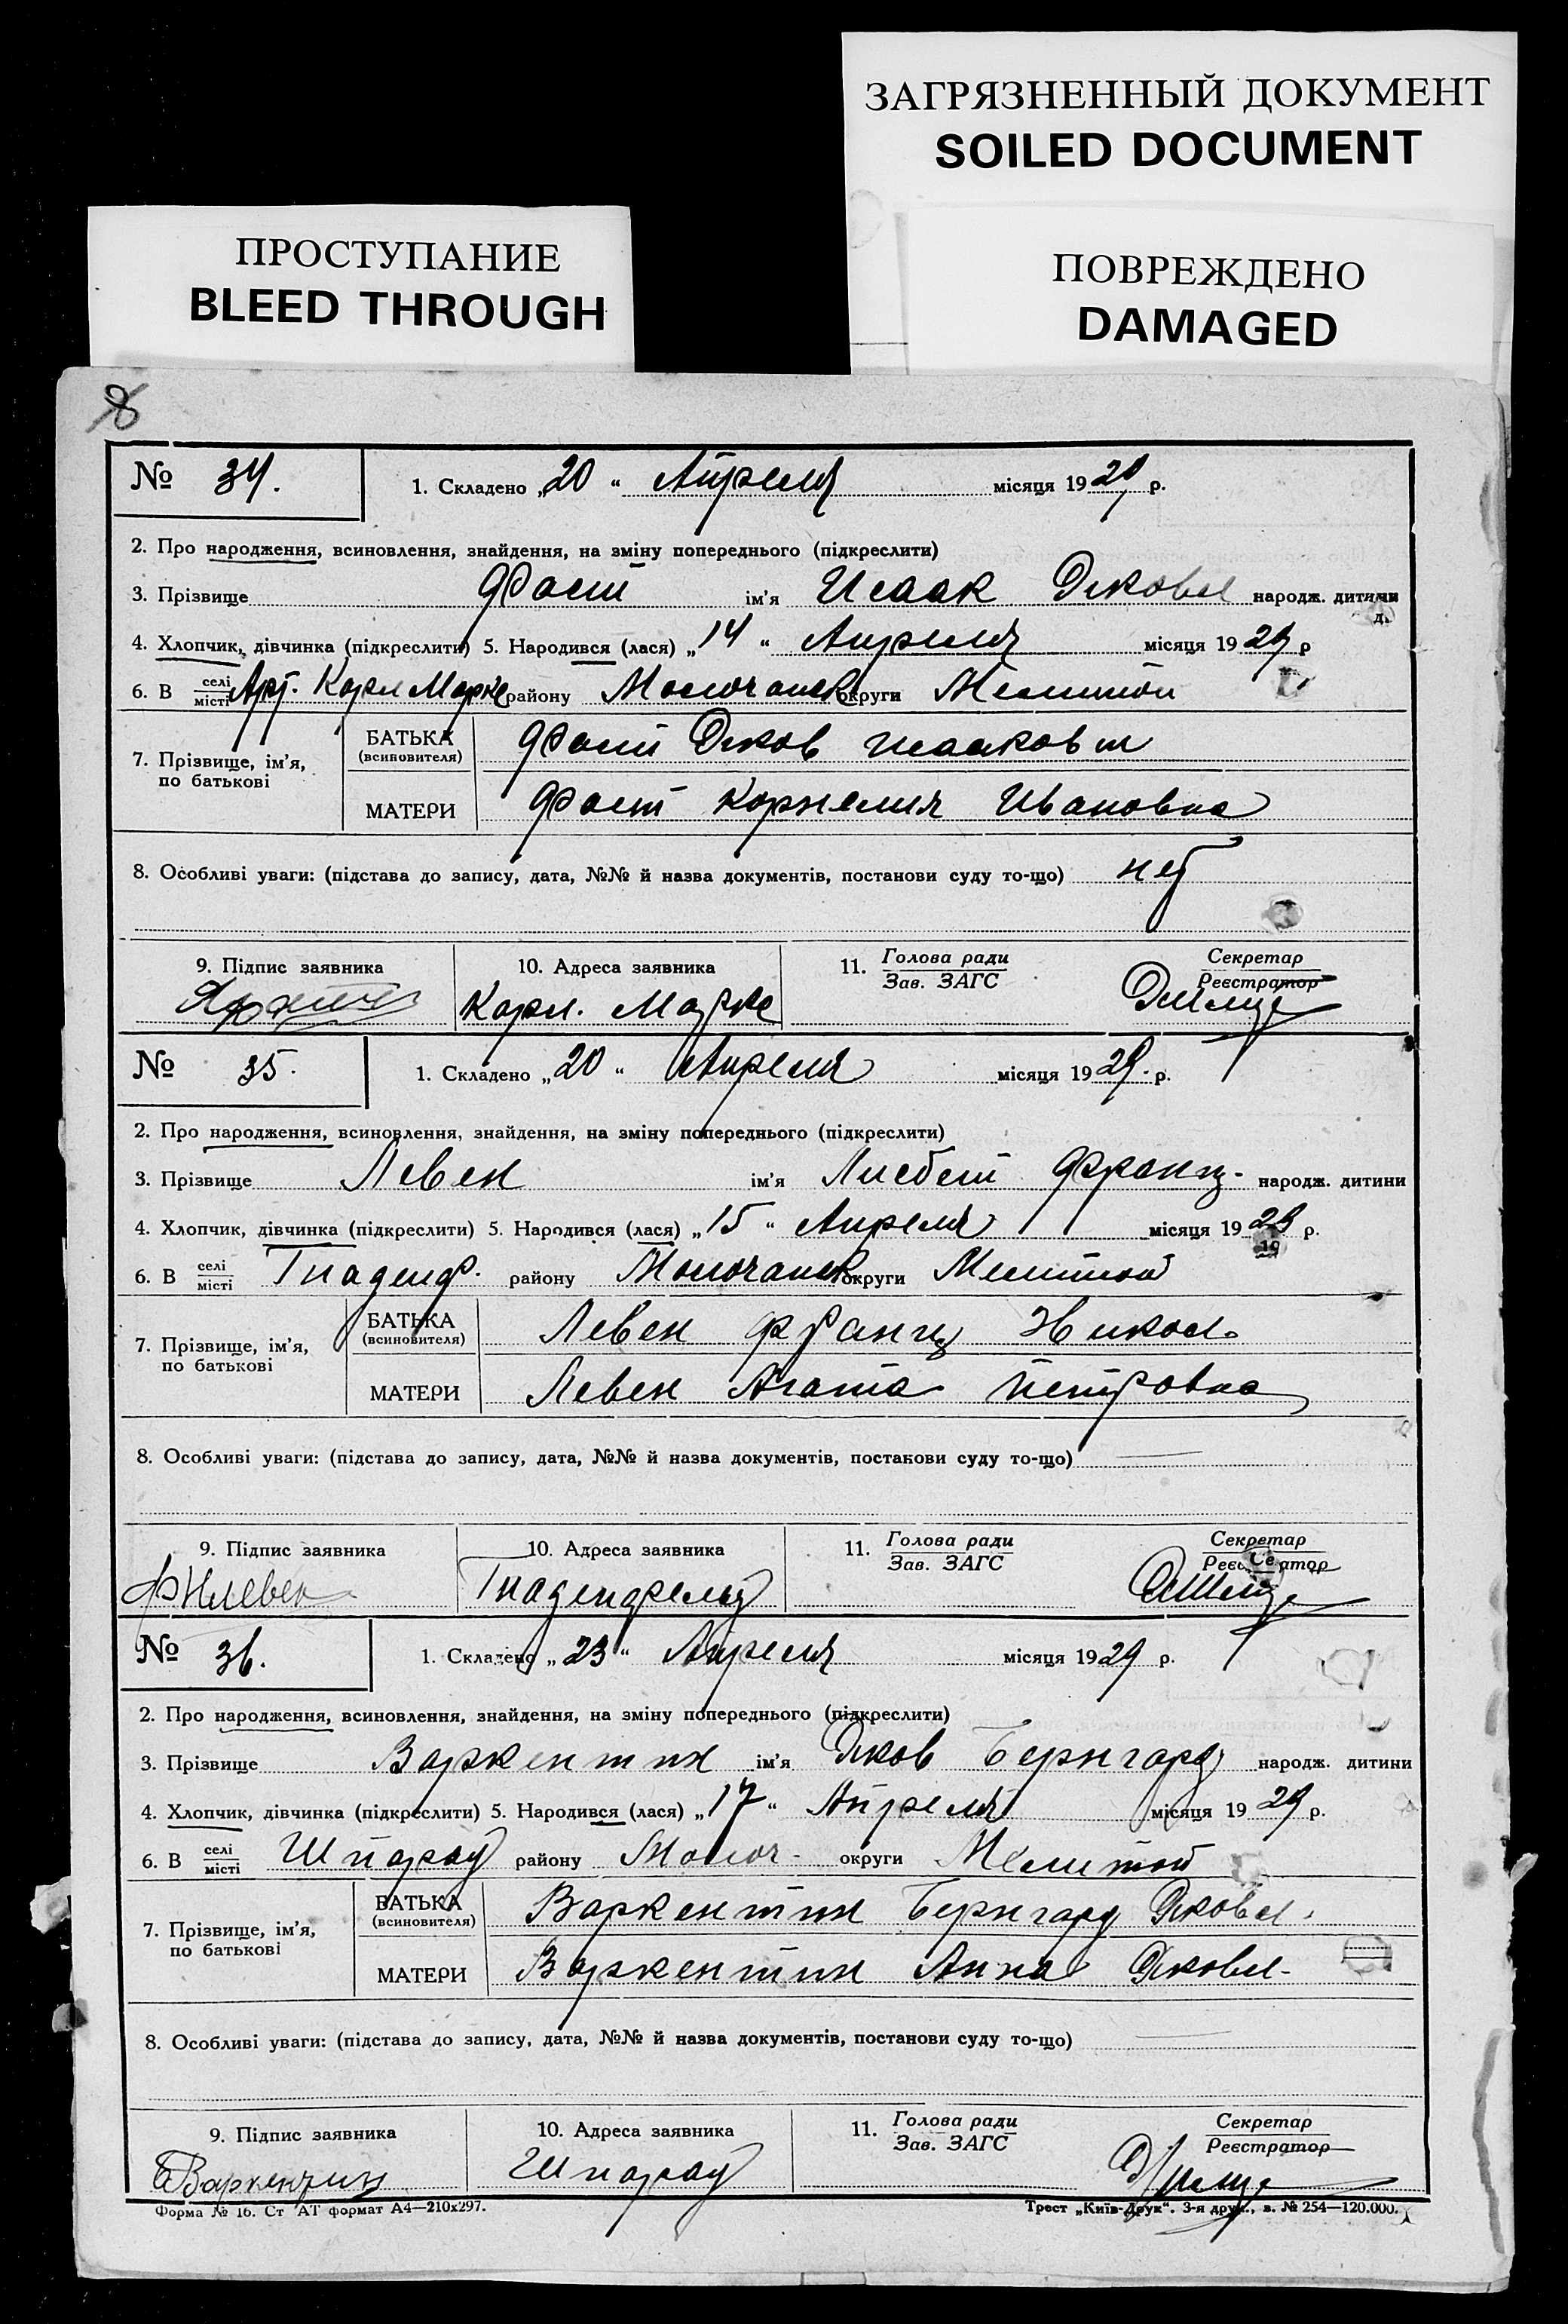 ЗАГРЯЗНЕННЫЙ ДОКУМЕНТ
SOILED DOCUMENT
ПРОСТУПАНИЕ
BLEED THROUGH
ПОВРЕЖДЕНО
DAMAGED
8
№ 34. 1. Складено „20“ Апреля місяця 1929 р.
2. Про народження, всиновлення, знайдення, на зміну попереднього (підкреслити)
3. Прізвище Фаст ім'я Исаак Яковл народж. дитини
4. Хлопчик, дівчинка (підкреслити) 5. Народився (лася) „14“ Апреля місяця 1929 р
6. В селі місті Арт. Карл Маркс району Молочанск округи Мелитоп
7. Прізвище, ім'я, по батькові БАТЬКА (всиновителя) Фаст Яков Исаакови
МАТЕРИ Фаст Корнелия Ивановна
8. Особливі уваги: (підстава до запису, дата, №№ й назва документів, постанови суду то-що) нет
9. Підпис заявника 10. Адреса заявника 11. Голова ради Зав. ЗАГС Секретар Реєстратор
Карл. Маркс
№ 35. 1. Складено „20“ Апреля місяця 1929. р.
2. Про народження, всиновлення, знайдення, на зміну попереднього (підкреслити)
3. Прізвище Левен ім'я Лисбет Франц. народж. дитини
4. Хлопчик, дівчинка (підкреслити) 5. Народився (лася) „15“ Апреля місяця 1929 р.
6. В селі місті Гнаденф. району Молочанск округи Мелитоп
7. Прізвище, ім'я, по батькові БАТЬКА (всиновителя) Левен Франц Никол.
МАТЕРИ Левен Агата Петровна
8. Особливі уваги: (підстава до запису, дата, №№ й назва документів, постанови суду то-що)
9. Підпис заявника 10. Адреса заявника 11. Голова ради Зав. ЗАГС Секретар Реєстратор
ФНЛевен Гнаденфельд
№ 36. 1. Складено „23“ Апреля місяця 1929 р.
2. Про народження, всиновлення, знайдення, на зміну попереднього (підкреслити)
3. Прізвище Варкентин ім'я Яков Бернгард народж. дитини
4. Хлопчик, дівчинка (підкреслити) 5. Народився (лася) „17“ Апреля місяця 1929 р.
6. В селі місті Шпарау району Молоч- округи Мелитоп
7. Прізвище, ім'я, по батькові БАТЬКА (всиновителя) Варкентин Бернгард Яковл.
МАТЕРИ Варкентин Анна Яковл-
8. Особливі уваги: (підстава до запису, дата, №№ й назва документів, постанови суду то-що)
9. Підпис заявника 10. Адреса заявника 11. Голова ради Зав. ЗАГС Секретар Реєстратор
БВаркентин Шпарау
Форма № 16. Ст АТ формат А4—210х297. Трест „Київ-Друк“. 3-я друк., з. № 254—120.000.